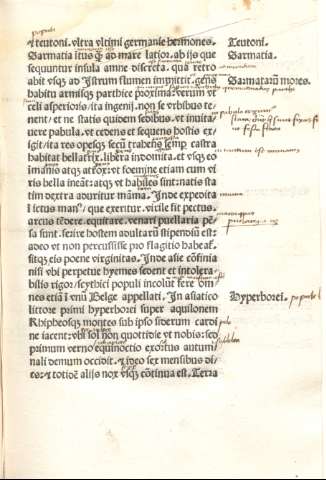 & teutoni. vltra vltimi germanie hermones.
Sarmatia ītus q̄ ad mare latior. ab ijs que
sequuntur insula amne discreta. qua retro
abit vsqꝫ ad Istrum flumen īmittit. gens
habitu armisqꝫ parthice proxima: verum vt
celi asperioris: ita ingenij. non se vrbibus te-
nent: et ne statis quidem sedibus. vt inuita-
uere pabula. vt cedens et sequens hostis ex-
igit: ita res opesqꝫ secū trahens semp castra
habitat bellatrix. libera indomita. et vsqꝫ eo
īmanis atqꝫ atrox: vt foemine etiam cum vi
ris bella ineāt: atqꝫ vt habiles sint: natis sta
tim dextra aduritur māma. Inde expedita
ī ictus man⁹ que exeritur. virile fit pectus.
arcus tēdere. equitare. venari puellaria pē
sa sunt. ferire hostem adultarū stipendiū est:
adeo vt non percussisse pro flagitio habeaf.
sitqꝫ eis poene virginitas. Inde asie cōfinia
nisi vbi perpetue hyemes sedent et intolera
bilis rigor: scythici populi incolūt fere om
nes etiā ī vnū Belge appellati. In asiatico
littore primi hyperborei super aquilonem
Rhipheosqꝫ montes sub ipso siderum cardi
ne iacent: vbi sol non quottidie vt nobis: sed
primum verno equinoctio exortus autum/
nali demum occidit. & ideo sex mensibus di
es: & totidē alijs nox vsqꝫ cōtinua est. Terra
Teutoni.
Sarmatia.
Sarmatarū mores.
Hyperborei.